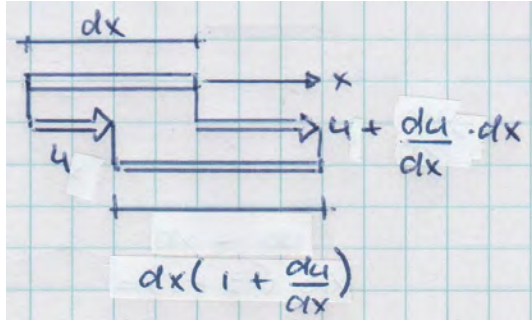 dx
x
u
u + du/dx · dx
dx(1 + du/dx)